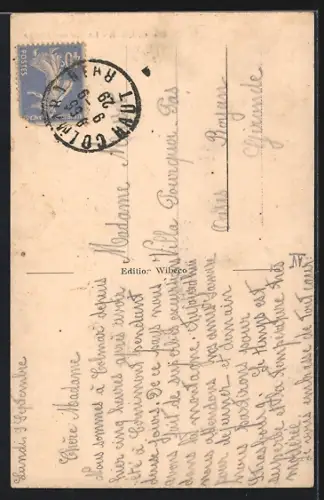 Lundi 9 Septembre
Chère Madame
Nous sommes à Colmar depuis
hier cinq heures après avoir
été à pendant
deux jours. De ce pays nous
avons fait de superbes excursions
dans la montagne. Aujourd'hui
nous attendons amie Jeanne
pour déjeuner et demain
nous partirons pour
Strasbourg. Le temps est
superbe et la température très
modérée.
Je vous embrasse de tout coeur
Edition Wibeco
Madame
Villa Pourquoi Pas
Royan
Gironde
POSTES
COLMAR
HAUT RHIN
9 9
29